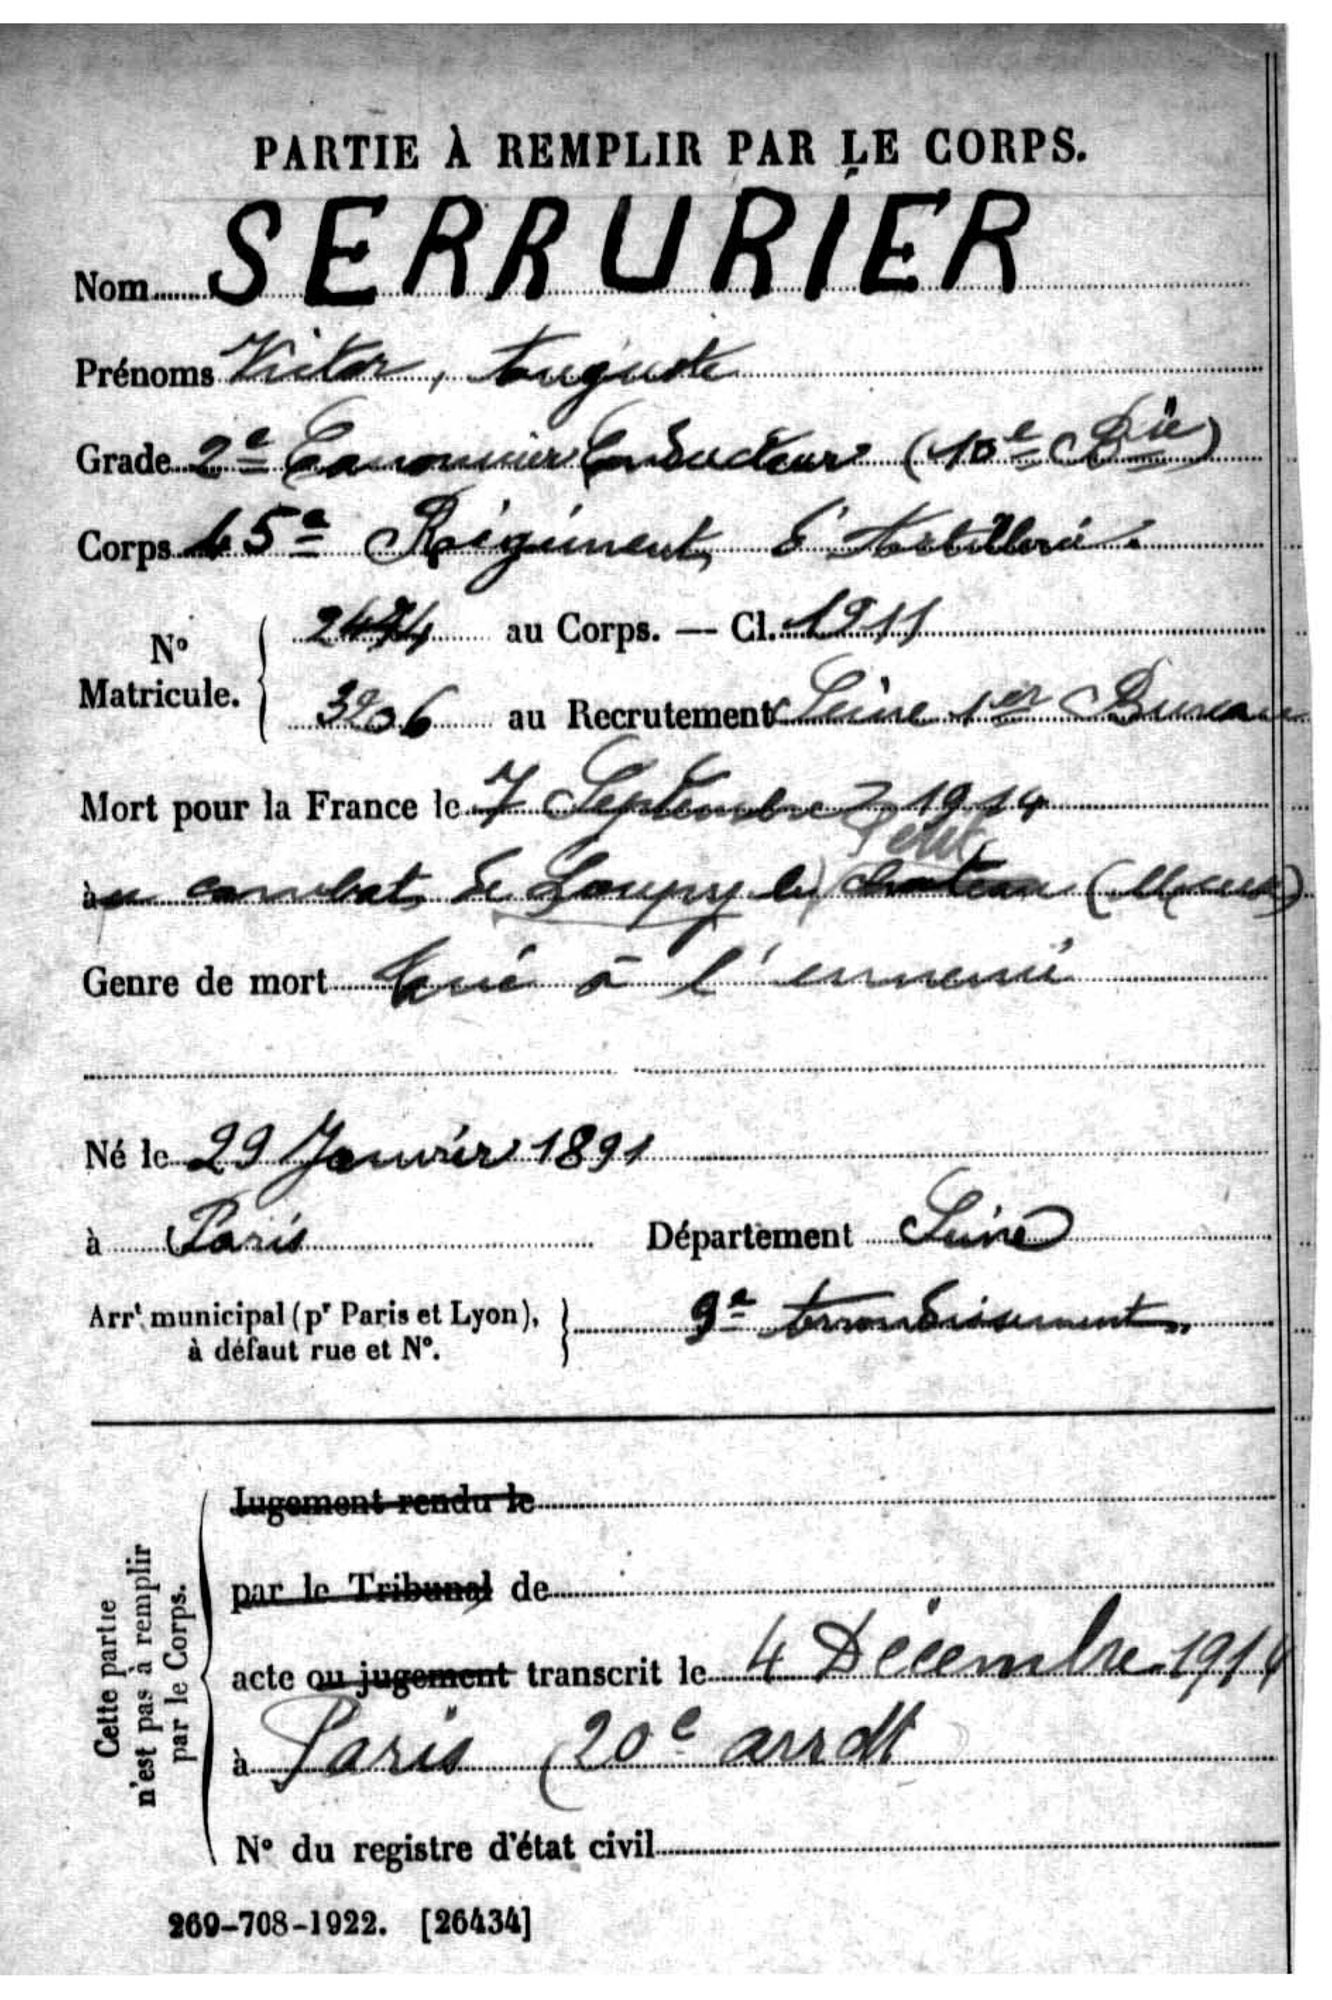 PARTIE À REMPLIR PAR LE CORPS.
Nom SERRURIER
Prénoms Victor, Auguste
Grade 2e Canonnier Conducteur (10e Bie)
Corps 45e Régiment d'Artillerie.
No Matricule. 2474 au Corps. — Cl. 1911
3206 au Recrutement Seine 1er Bureau
Mort pour la France le 7 Septembre 1914
Petit
au combat de Louppy le château (Meuse)
Genre de mort tué à l'ennemi
Né le 29 Janvier 1891
à Paris Département Seine
Arrt municipal (pr Paris et Lyon), à défaut rue et No. 9e Arrondissement.
Cette partie n'est pas à remplir par le Corps.
Jugement rendu le
par le Tribunal de
acte ou jugement transcrit le 4 Décembre 1914
à Paris (20e arrdt
No du registre d'état civil
269-708-1922. [26434]